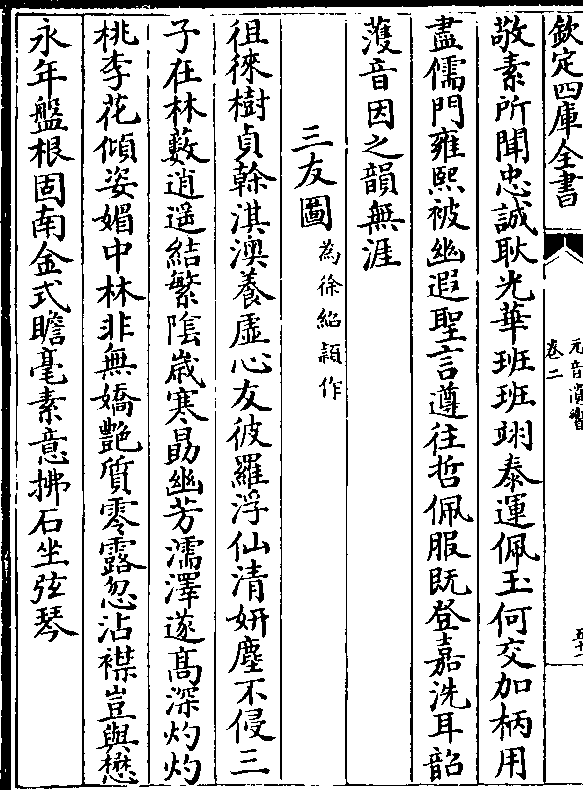 欽定四庫全書
元音
卷二
敬素所聞忠誠耿光華班班翊泰運佩玉何交加柄用
盡儒門雍熙被幽遐聖言遵往哲佩服旣登嘉洗耳韶
頀音因之韻無涯
三友圖為徐紹穎作
徂徠樹貞榦淇澳養虛心友彼羅浮仙清妍塵不侵三
子在林藪逍遥結繁陰歳寒勗幽芳濡澤遂髙深灼灼
桃李花傾姿媚中林非無嬌艶質零露忽沾襟豈與懋
永年盤根固南金式瞻毫素意拂石坐弦琴